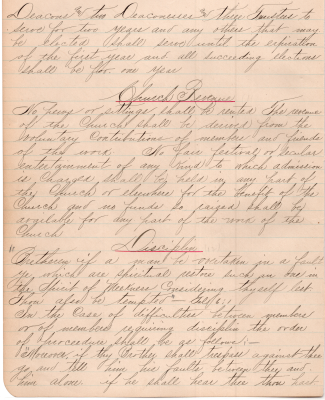 Deacons two Deaconesses three Trustees to
serve for two years and any others that may
be elected shall serve until the expiration
of the first year and all succeeding elections
shall be for one year
Church Revenue
No pews or sittings shall be rented The revenue
of the Church shall be derived from the
Voluntary Contributions of members and friends
of the word. No fair festival or secular
entertainment of any kind to which admission
is charged, shall be held in any part of
the Church or elsewhere for the benefit of the
Church and no funds so raised shall be
available for any part of the work of the
Church
Discipline
"Brethren if a man be overtaken in a fault
ye, which are spiritual restore such an one in
the Spirit of Meekness; Considering thyself lest
thou also be tempted" Gal 6:1
In the Case of difficulties between members
or of members requiring discipline the order
of proceedure shall be as follows:—
"Moreover if thy Brother shall trespass against thee
go and tell him his faults between thee and
him alone if he shall hear thee thou hast